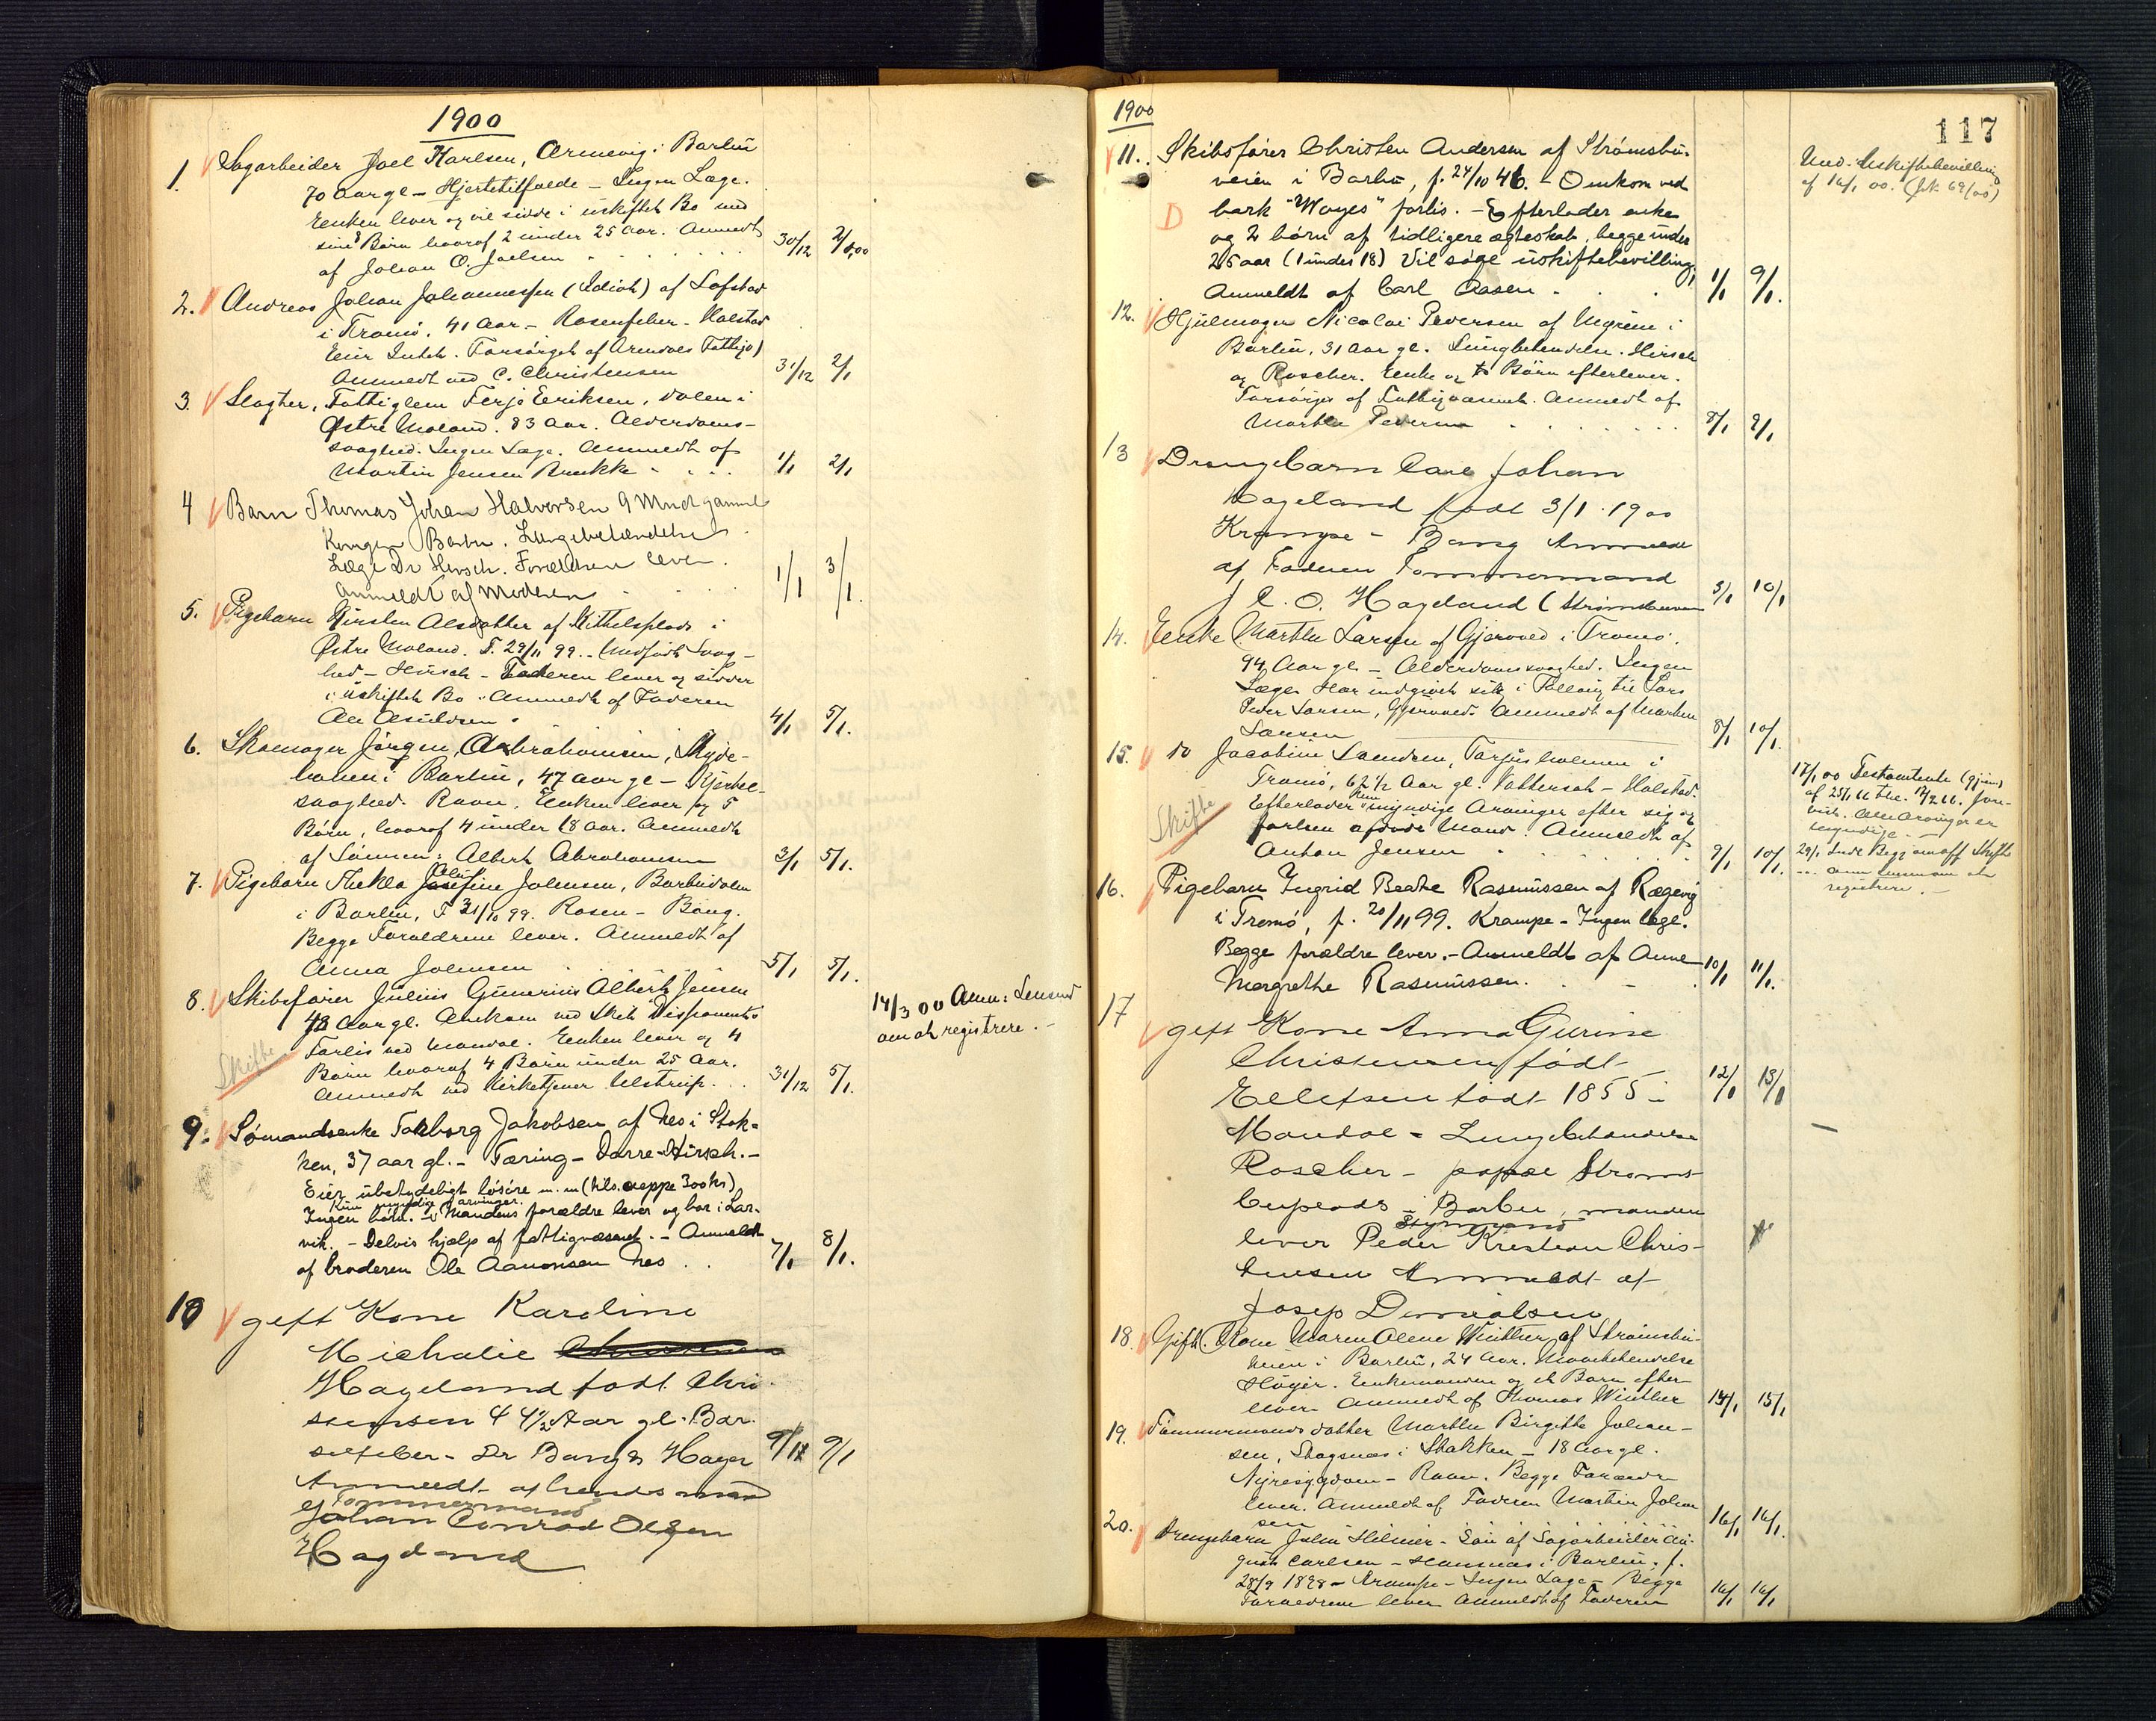 1900
1. Sagarbeider Joel Karlsen, Arnevig i Barbu
70 Aar gl – Hjertetilfælde – Ingen Læge.
Enken lever og vil sidde i uskiftet Bo med
sine Børn hvoraf 2 under 25 Aar. Anmeldt
af Johan O. Joelsen 30/12 2/1 00
2. Andreas Johan Johannessen (Idiot) af Lofstad
i Tromø. 41 Aar – Rosenfeber – Halstad
Eier Intet. Forsørget af Arendals Fattigv)
Anmeldt ved C. Christensen 31/12 2/1
3. Slagter, Fattiglem Terje Eeriksen, Dalen i
Østre Moland. 83 Aar. Alderdoms-
svaghed. Ingen Læge. Anmeldt af
Martin Jensen Brekke 1/1 2/1
4 Barn Thomas Johan Halvorsen 9 Mndr gammel
Barbu. Lungebetændelse
Læge Dr Hirsch. Forældrene lever.
Anmeldt af Moderen 1/1 3/1.
5. Pigebarn Kirsten Alesdatter af Kittelsplads i
Østre Moland. F. 29/11 99. – Medfødt Svag-
hed – Hirsch – Faderen lever og sidder
i uskiftet Bo. Anmeldt af Faderen
Ale 4/1 5/1.
6. Skomager Jørgen Aabrahamsen, Skyde-
banen i Barbu, 47 Aar gl – Hjerte-
svaghed. Ravn. Enken lever og 5
Børn, hvoraf 4 under 18 Aar. Anmeldt
af Sønnen: Albert Abrahamsen 3/1 5/1.
7. Pigebarn Thekla Josefine Johnsen, Barbudalen
i Barbu, F 31/10 99. Rosen – Bang.
Begge Forældrene lever. Anmeldt af
Anna Johnsen 5/1 5/1.
8. Skibsfører Julius Gunerius Alberth Jensen
48 Aar gl. Omkom ved Skib Disponents
Forlis ved Mandal. Enken lever og 4
Børn hvoraf 4 Børn under 25 Aar.
Anmeldt ved Kirketjener Ulstrup. 31/12 5/1.
Skifte
14/3 00 Anm: Lensmd
om at registrere. –
9. Sømandsenke Torborg Jakobsen af Nes i Stok-
ken, 37 aar gl. – Tæring – Dorre-Hirsch. –
Eier ubetydeligt løsøre m.m (hls. neppe 300 kr)
Kun myndige arvinger.
Ingen børn. – Mandens forældre lever og bor i Lar-
vik. – Delvis hjælp af fattigvæsenet. – Anmeldt
af broderen Ole Aanonsen Nes 7/1 8/1.
10 gift Kone Karoline
Michalie
Hageland født Chri
stensen 44 1/2 Aar gl. Bar
selfeber – Dr Bang & Høyer 9/1 9/1
Anmeldt af hendes mand
Tømmermand
Johan Conrad Olsen
Hageland
1900
117
11. Skibsfører Christen Andersen af Strømsbu-
veien i Barbu, f. 24/10 46. – Omkom ved
bark "Noyes" forlis. – Efterlader enke
D og 2 børn af tidligere ægteskab, begge under
25 aar (1 under 18) Vil søge uskiftebevilling,
Anmeldt af Carl Aasen 1/1 9/1.
Med. Uskiftebevilling
af 16/1 00. (jk 69/00)
12. Hjulmager Nicolai Pedersen af Mgrene i
Barbu, 31 Aar gl. Lungbetendelse. Hirsch
og Roscher. Enke og to Børn efterlever.
Forsørges af Fattigvæsenet. Anmeldt af
Marthe Pedersen 8/1 9/1
13 Drengebarn Carl Johan
Hageland født 3/1 1900
Krampe – Bang Anmeldt
af Faderen Tømmermand
J C. O. Hageland (Strømsbuveien 3/1 10/1
14. Enke Marthe Larsen af Gjerved i Tromø.
94 Aar gl – Alderdomssvaghed. Ingen
Læge. Har indgivet sitg i Følling til Lars
Peder Larsen, Gjerved. Anmeldt af Marthe
Larsen 8/1 10/1.
15. do Jacobine Lændsen, Tarjusholmen i
Tromø, 62 1/2 Aar gl. Vattersot – Halstad.
Efterlader Kun myndige Arvinger efter sig og
Skifte forhen afdøde Mand. Anmeldt af
Anton Jensen 9/1 10/1.
17/1 00 Testamente (gjens)
af 25/1 66 thl. 12/2 66. frem-
vist. Alle Arvinger er
myndige. –
29/1 Indk Begj om off Skifte
... Anm Lensmm om
registrere. –
16. Pigebarn Ingrid Beate Rasmussen af Rægevig
i Tromø, f. 20/11 99. Krampe – Ingen læge.
Begge forældre lever. – Anmeldt af Anne
Margrethe Rasmussen. 10/1 11/1.
17 gift Kone Anna Gurine
Christensen født
Ellefsen født 1855 i
Mandal – Lungebetændelse
Roscher – Strøms-
buplads i Barbu, manden
Styrmand
lever Peder Kristian Chris-
tensen Anmeldt af
Josep Danielsen
12/1 13/1
18. Gift. Kone Maren Olene Winther af Strømsbu-
heien i Barbu, 24 Aar.
Høyer. Enkemanden og et Barn efter-
lever. Anmeldt af Thomas Winther 13/1 15/1
19. Tømmermandsdatter Marthe Birgitte Johan-
sen, Skagsnes i Stokken – 18 Aar gl.
Nyresygdom – Ravn. Begge Forældre
lever. Anmeldt af Faderen Martin Johan
sen 16/1 16/1.
20. Drengebarn Julius Hilmer – Søn af Sagarbeider Au-
gust Carlsen – i Barbu. f.
28/9 1898 – Krampe – Ingen Læge – Begge
Forældrene lever Anmeldt af Faderen 16/1 16/1